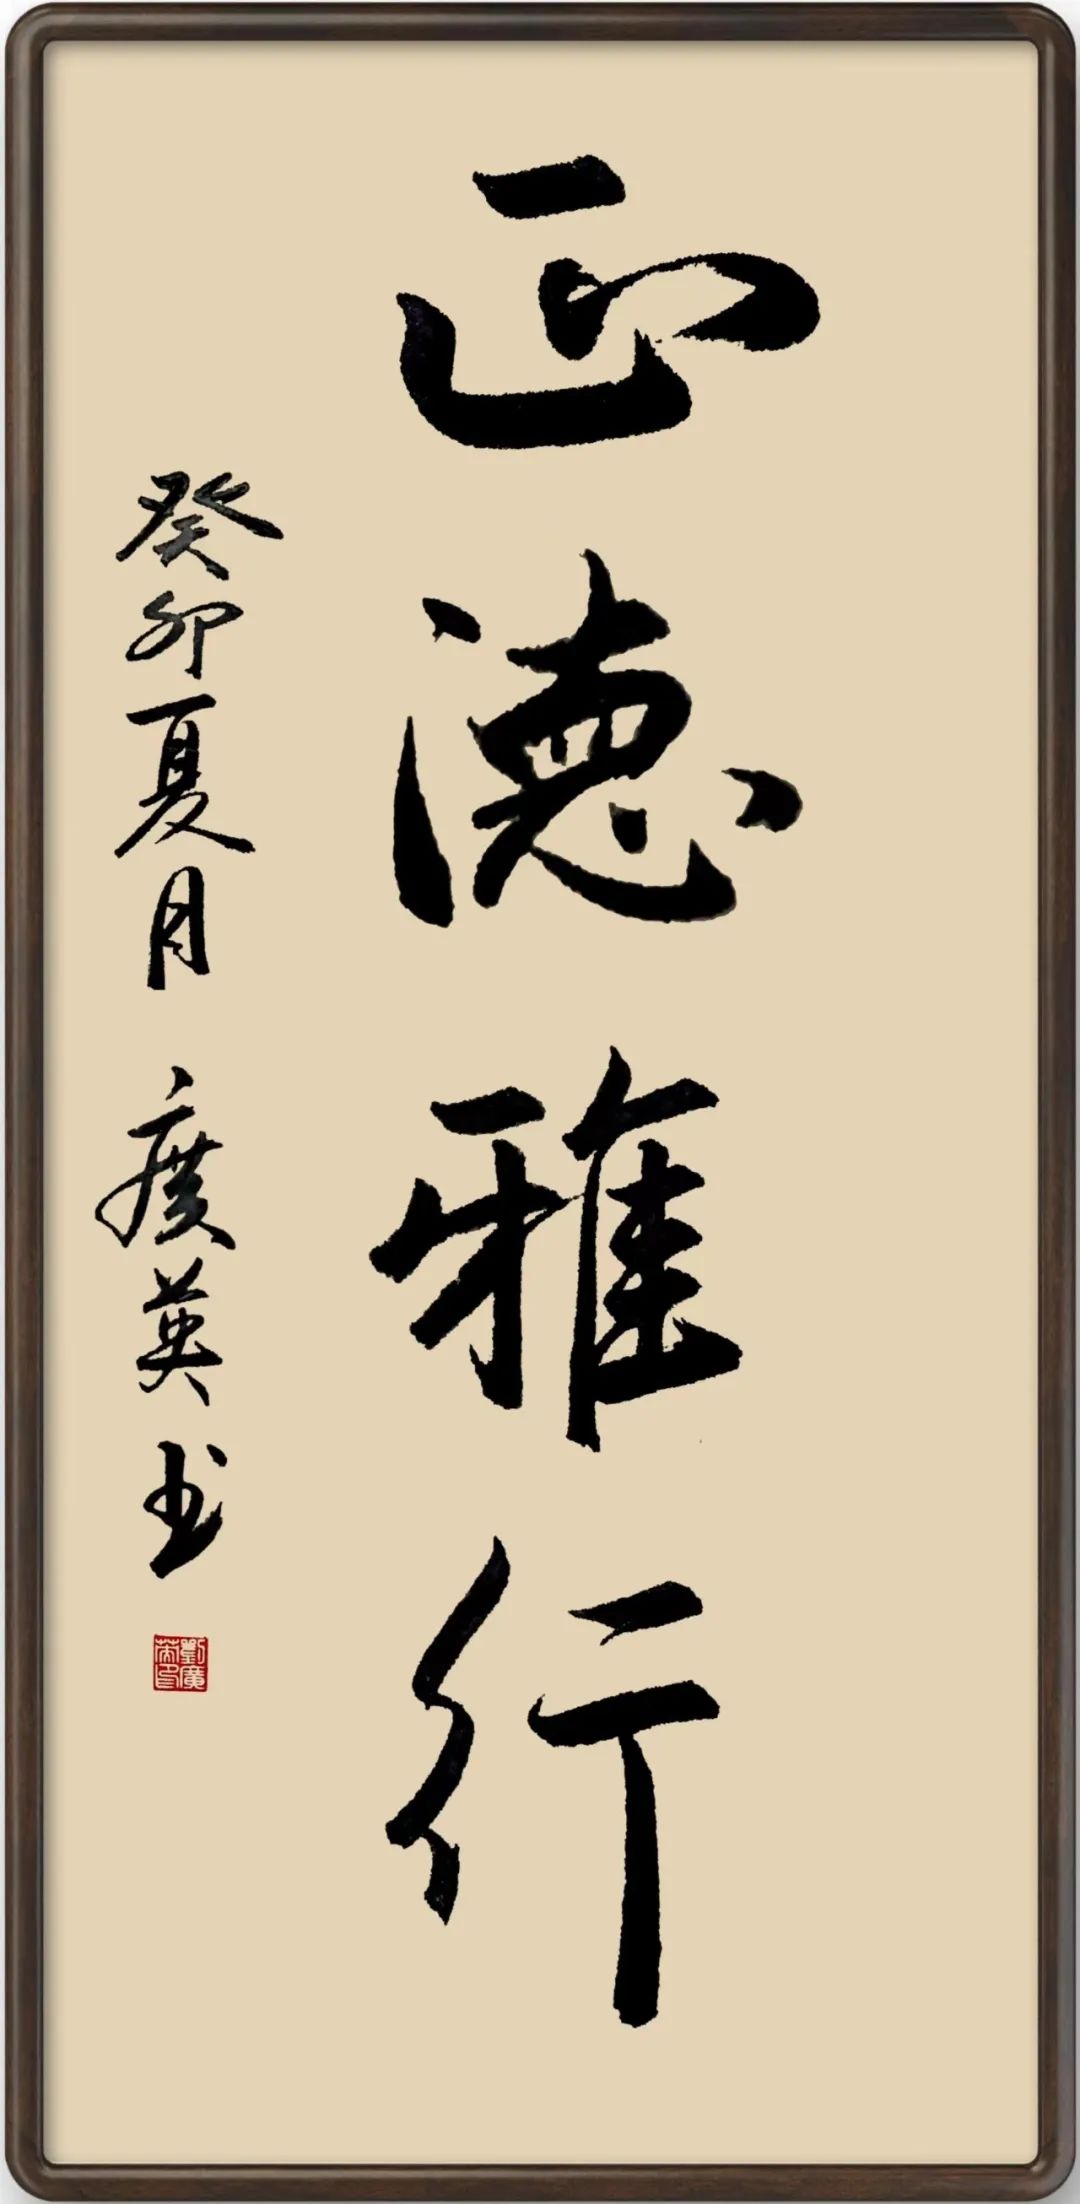 正德雅行
癸卯夏月 广英书
劉廣英印